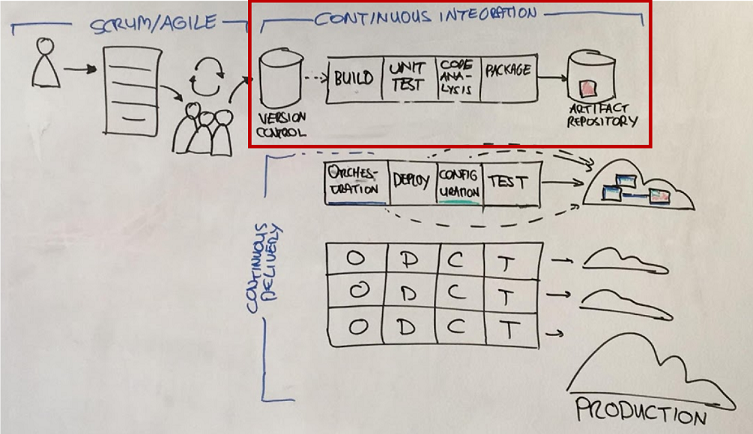 SCRUM/AGILE
CONTINUOUS INTEGRATION
BUILD
UNIT
TEST
CODE
ANA-
LYSIS
PACKAGE
VERSION
CONTROL
ARTIFACT
REPOSITORY
CONTINUOUS
DELIVERY
ORCHES-
TRATION
DEPLOY
CONFIG
URATION
TEST
O D C T
O D C T
O D C T
PRODUCTION